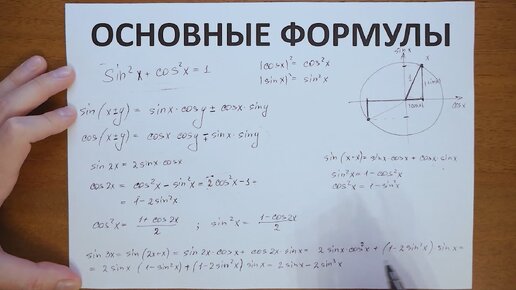 ОСНОВНЫЕ ФОРМУЛЫ
sin²x + cos²x = 1
|cosx|² = cos²x
|sinx|² = sin²x
sin x
x
1
|sinx|
|cosx|
cosx
sin(x±y) = sinx·cosy ± cosx·siny
cos(x±y) = cosx·cosy ∓ sinx·siny
sin2x = 2sinx cosx
cos2x = cos²x - sin²x = 2cos²x - 1 =
= 1 - 2sin²x
sin(x+x) = sinx·cosx + cosx·sinx
sin²x = 1 - cos²x
cos²x = 1 - sin²x
cos²x = (1 + cos2x)/2 ; sin²x = (1 - cos2x)/2
sin3x = sin(2x+x) = sin2x·cosx + cos2x·sinx = 2sinx·cos²x + (1-2sin²x) sinx =
= 2sinx (1-sin²x) + (1-2sin²x) sinx = 2sinx - 2sin³x